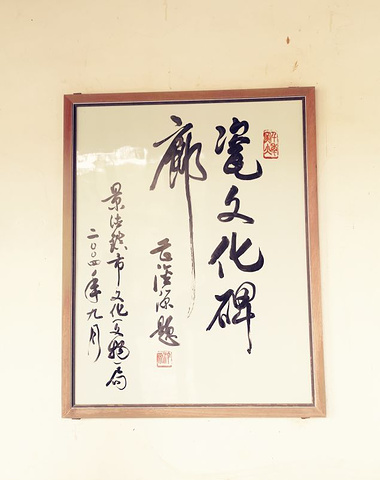 瓷文化碑
廊
源题
景德镇市文化(文物)局
二〇〇四年九月